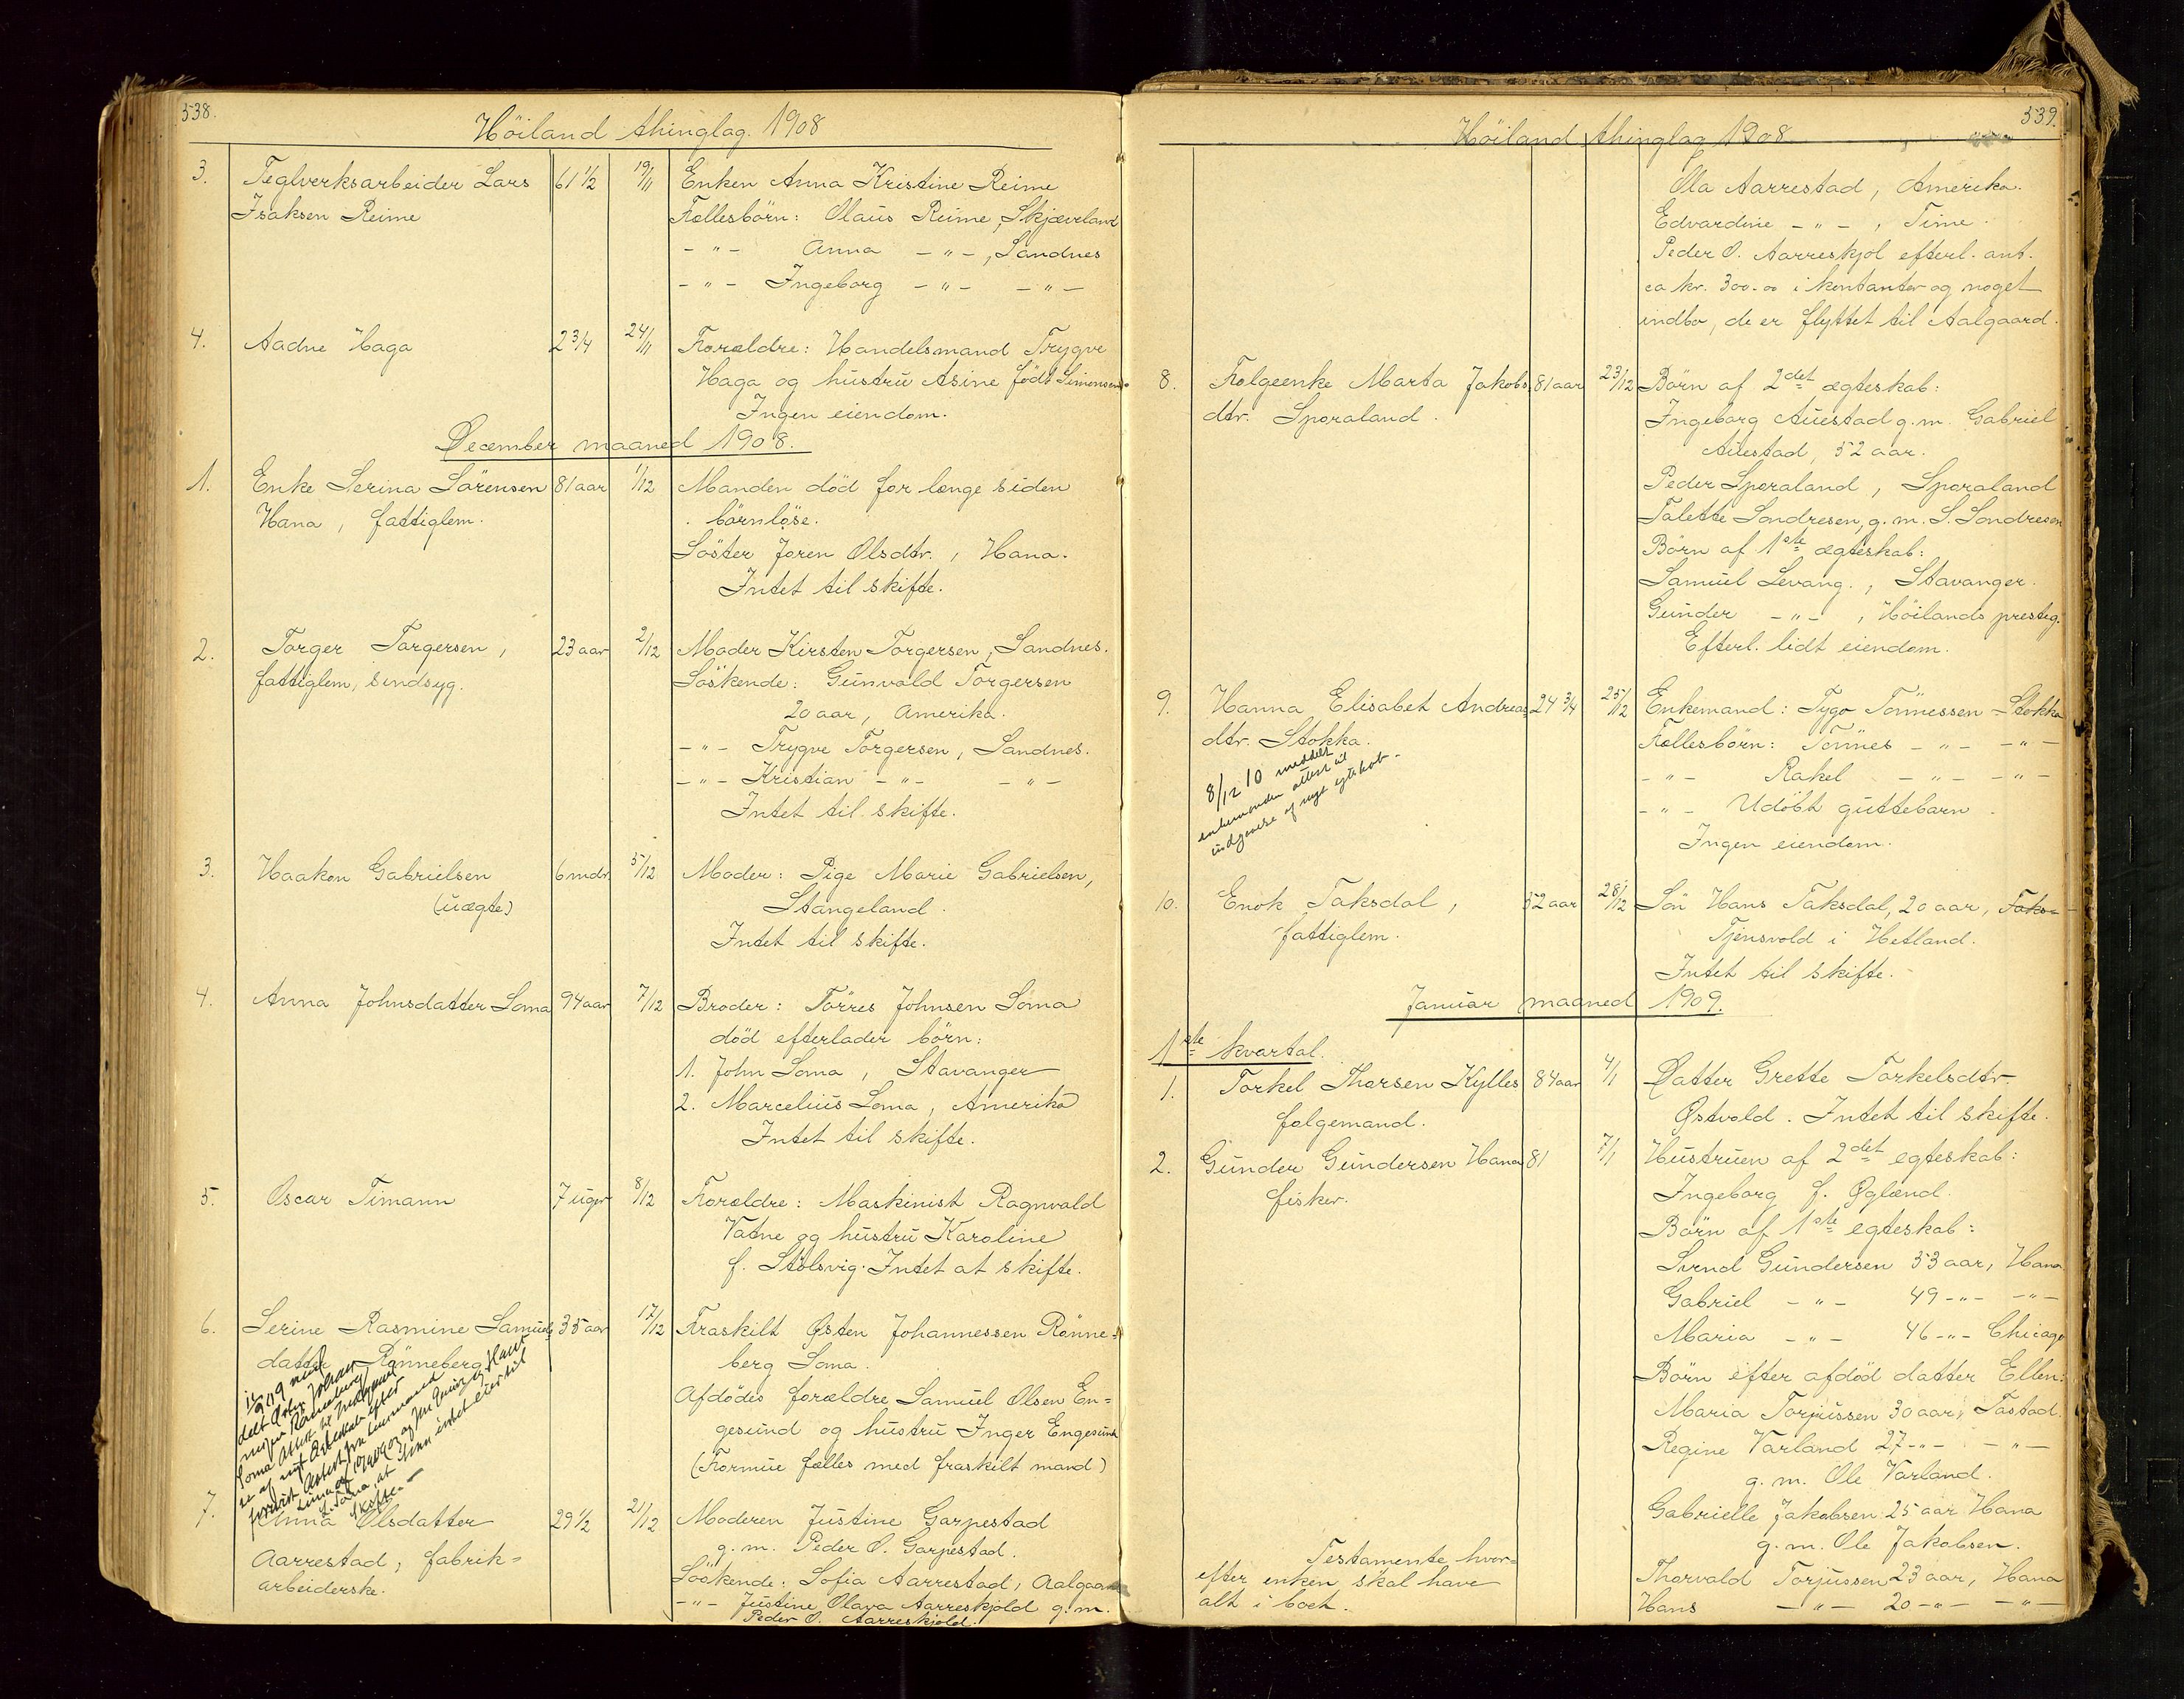 538.
Höiland thinglag. 1908
3. Teglverksarbeider Lars 61 1/2 19/11 Enken Anna Kristine Reime
Isaksen Reime Fællesbörn: Olaus Reime, Skjæveland
- " - Anna - " -, Sandnes
- " - Ingeborg - " - - " -
4. Aadne Haga 2 3/4 24/11 Forældre: Handelsmand Trygve
Haga og hustru Asine födt Simonsen.
Ingen eiendom.
December maaned 1908.
1. Enke Serina Sörensen 81 aar 1/12 Manden död for længe siden
Hana, fattiglem. börnlöse.
Söster Joren Olsdtr., Hana.
Intet til skifte.
2. Torger Torgersen, 23 aar 2/12 Moder Kirsten Torgersen, Sandnes.
fattiglem, sindsyg. Söskende: Gunvald Torgersen
20 aar, Amerika.
- " - Trygve Torgersen, Sandnes.
- " - Kristian - " - - " -
Intet til skifte.
3. Haakon Gabrielsen 6 mdr. 5/12 Moder: Pige Marie Gabrielsen,
(uægte) Stangeland.
Intet til skifte.
4. Anna Johnsdatter Soma 94 aar 7/12 Broder: Törres Johnsen Soma
död efterlader börn:
1. John Soma, Stavanger
2. Marcelius Soma, Amerika
Intet til skifte.
5. Oscar Timann 7 uger 8/12 Forældre: Maskinist Ragnvald
Vatne og hustru Karoline
f. Stölsvig. Intet at skifte.
6. Serine Rasmine Samuels 35 aar 17/12 Fraskilt Østen Johannessen Rönne=
datter Rönneberg berg Soma.
Afdödes forældre Samuel Olsen En=
gesund og hustru Inger Engesund
(Formue fælles med fraskilt mand)
7. Anna Olsdatter 29 1/2 21/12 Moderen Justine Garpestad
Aarrestad, fabrik= g. m. Peder O. Garpestad.
arbeiderske. Söskende: Sofia Aarrestad, Aalgaard
- " - Justine Olava Aarreskjold g. m.
Peder O. Aarreskjold.
539.
Höiland thinglag 1908
Ola Aarrestad, Amerika.
Edvardine - " -, Time.
Peder O. Aarreskjol efterl. ant.
ca kr. 300.00 i kontanter og noget
indbo, de er flyttet til Aalgaard.
8. Folgeenke Marta Jakobs 81 aar 23/12 Börn af 2det ægteskab:
dtr. Sporaland. Ingeborg Auestad g. m. Gabriel
Auestad, 52 aar.
Peder Sporaland, Sporaland
Talette Sondresen, g. m. S. Sondresen
Börn af 1ste ægteskab:
Samuel Levang., Stavanger.
Gunder - " -, Höilands presteg.
Efterl. lidt eiendom.
9. Hanna Elisabet Andreas= 24 3/4 25/12 Enkemand: Tygo Tönnessen Stokka
dtr. Stokka. Fællesbörn: Tönnes - " - - " -
8/12 10 meddelt
enkemanden attest til
indgaaelse af nyt egteskab -
- " - Rakel - " - - " -
- " - Udöbt guttebarn.
Ingen eiendom.
10. Enok Taksdal, 52 aar 28/12 Sön Hans Taksdal, 20 aar, Taks=
fattiglem. Tjensvold i Hetland.
Intet til skifte.
Januar maaned 1909.
1ste kvartal.
1. Torkel Thorsen Kylles 84 aar 4/1 Datter Grette Torkelsdtr.
folgemand. Østvold. Intet til skifte.
2. Gunder Gundersen Hana 81 7/1 Hustruen af 2det egteskab:
fisker. Ingeborg f. Øglænd.
Börn af 1ste egteskab:
Svend Gundersen 53 aar, Hana
Gabriel - " - 49 - " - - " -
Maria - " - 46 - " - Chicago
Börn efter afdöd datter Ellen:
Maria Torjussen 30 aar, Tastad.
Regine Varland 27 - " - - " -
g. m. Ole Varland.
Gabrielle Jakobsen 25 aar Hana
g. m. Ole Jakobsen.
Testamente hvor=
efter enken skal have
alt i boet.
Thorvald Torjussen 23 aar, Hana
Hans - " - 20 - " - - " -